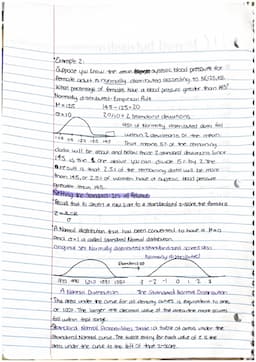 Example 2:
Suppose you know the mean systolic blood pressure for
female adult is normally distributed according to
What percentage of females have a blood pressure greater than 145?
Normally distributed - Empirical Rule
M = 125 145 - 125 = 20
20/10 = 2 standard deviations
95% of normally distributed data fall
within 2 deviations of the mean.
That means 5% of the remaining
data will be above and below those 2 standard deviations. Since
145 is the one above you can divide 5% by 2. The
result is that 2.5% of the remaining data will be more
than 145, or 2.5% of women have a systolic blood pressure
greater than 145.
Recall that to convert a raw score to a standardized z-score, the formula
A Normal distribution that has been converted to have a M = 0
and σ = 1 is called Standard Normal distribution.
Original set Normally distributed → standardized scores also
Normally distributed!
Standardize
-3 -2 -1 0 1 2 3
A Normal Distribution The Standard Normal Distribution
The area under the curve for all density curves is equivalent to one,
or 100%. The larger the decimal value of the area, the more scores
fall within that range.
Standard Normal Probabilities Table is a table of areas under the
Standard Normal curve. The table entry for each value of z is the
area under the curve to the left of that z-score.